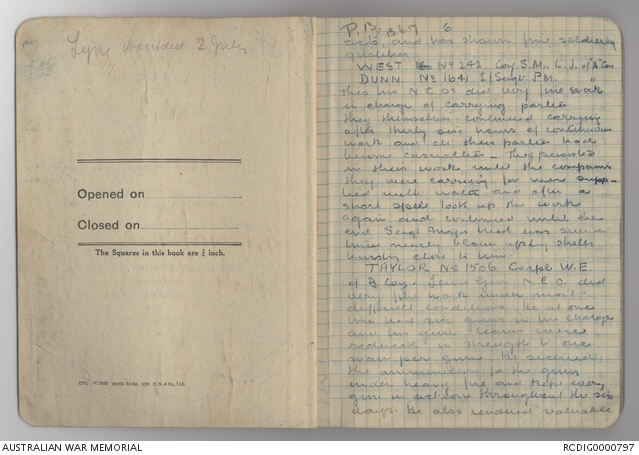 Type 2 July
Opened on
Closed on
The Squares in this book are ¼ inch.
P.B. B & 7 6
acts and has shown fine soldierly
qualities
WEST No 242 Coy S.M. L.J. of "A" Coy
DUNN. No 1641 L/Sergt P.M. "
These two N.C.Os did very fine work
in charge of carrying parties
they themselves continued carrying
after thirty six hours of continuous
work and all their parties had
become casualties – They persisted
in their work until the companies
they were carrying for were supp-
lied with water and after a
short spell took up the work
again and continued until the
end Sergt Major West was several
times nearly blown up by shells
bursting close to him.
TAYLOR No 1506 Corpl W.E.
of B Coy. Lewis Gun N.C.O. did
very fine work under most
difficult conditions. He at one
time had six guns in his charge
and his gun teams were
reduced in strength to one
man per gun. He secured
the ammunition for the guns
under heavy fire and kept every
gun in action throughout the six
days. He also rendered valuable
AUSTRALIAN WAR MEMORIAL
RCDIG0000797